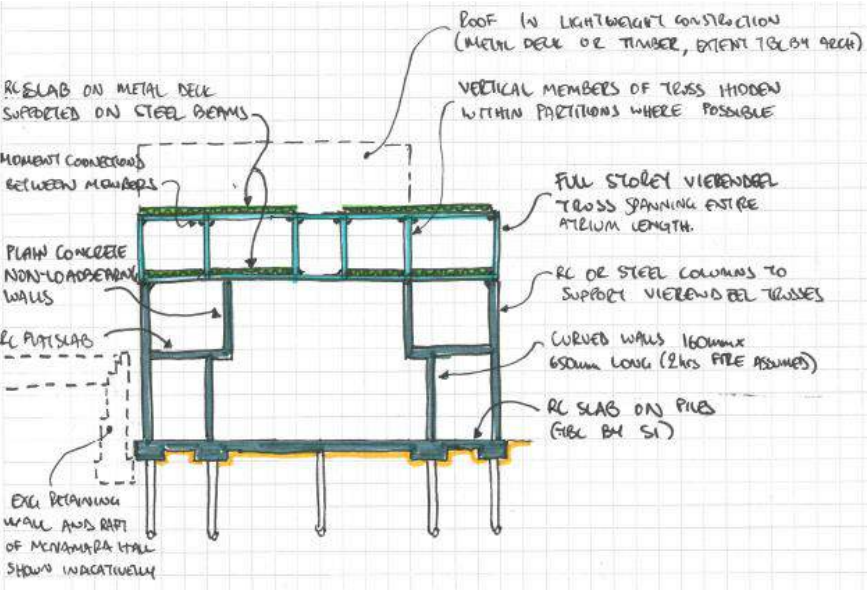 ROOF IN LIGHTWEIGHT CONSTRUCTION
(METAL DECK OR TIMBER, EXTENT TBC BY ARCH)
RC SLAB ON METAL DECK
SUPPORTED ON STEEL BEAMS
VERTICAL MEMBERS OF TRUSS HIDDEN
WITHIN PARTITIONS WHERE POSSIBLE
MOMENT CONNECTIONS
BETWEEN MEMBERS
FULL STOREY VIERENDEEL
TRUSS SPANNING ENTIRE
ATRIUM LENGTH.
PLAIN CONCRETE
NON-LOADBEARING
WALLS
RC OR STEEL COLUMNS TO
SUPPORT VIERENDEEL TRUSSES
RC FLAT SLAB
CURVED WALLS 160mm x
650mm LONG (2hrs FIRE ASSUMED)
RC SLAB ON PILES
(TBC BY SI)
EXG RETAINING
WALL AND RAFT
OF MCNAMARA HALL
SHOWN INDICATIVELY